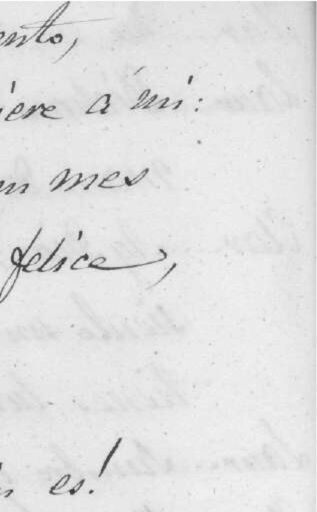 ento,
iere á mi:
un mes
felice,
es!